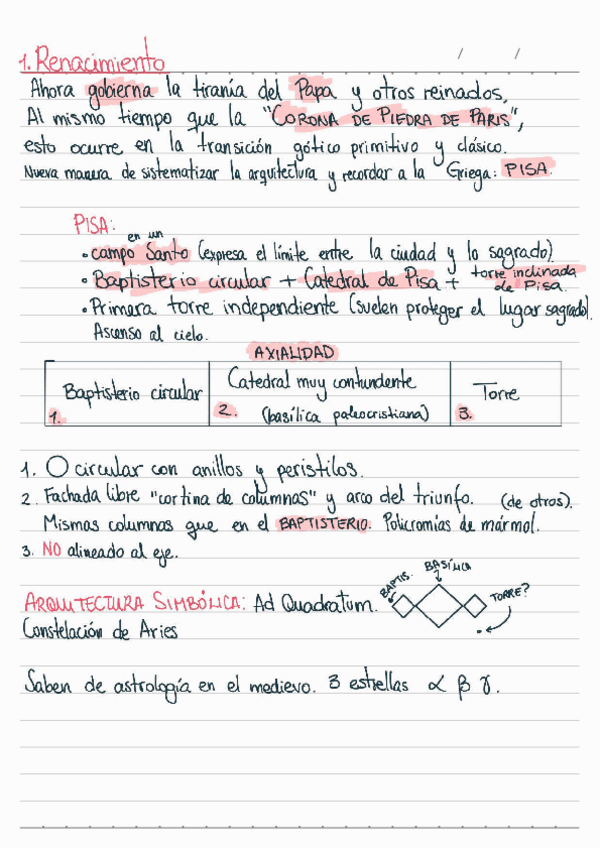 1. Renacimiento
/ /
Ahora gobierna la tiranía del Papa y otros reinados.
Al mismo tiempo que la "CORONA DE PIEDRA DE PARIS",
esto ocurre en la transición gótico primitivo y clásico.
Nueva manera de sistematizar la arquitectura y recordar a la Griega: PISA.
PISA:
en un
• campo Santo (expresa el límite entre la ciudad y lo sagrado).
• Baptisterio circular + Catedral de Pisa + torre inclinada
de Pisa.
• Primera torre independiente (suelen proteger el lugar sagrado).
Ascenso al cielo.
AXIALIDAD
Baptisterio circular
1.
Catedral muy contundente
2. (basílica paleocristiana)
Torre
3.
1. O circular con anillos y peristilos.
2. Fachada libre "cortina de columnas" y arco del triunfo. (de otros).
Mismas columnas que en el BAPTISTERIO. Policromías de mármol.
3. NO alineado al eje.
ARQUITECTURA SIMBÓLICA: Ad Quadratum.
BAPTIS.
BASÍLICA
TORRE?
Constelación de Aries
Saben de astrología en el medievo. 3 estrellas α β γ.